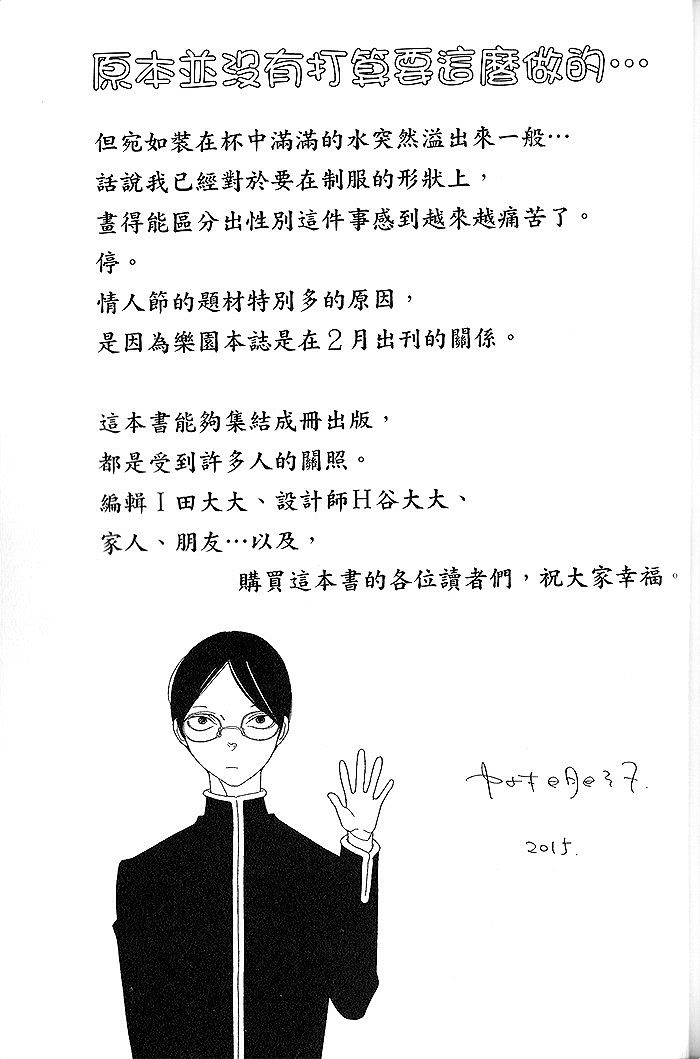 原本並沒有打算要這麼做的…
但宛如裝在杯中滿滿的水突然溢出來一般…
話說我已經對於要在制服的形狀上，
畫得能區分出性別這件事感到越來越痛苦了。
停。
情人節的題材特別多的原因，
是因為樂園本誌是在２月出刊的關係。
這本書能夠集結成冊出版，
都是受到許多人的關照。
編輯Ｉ田大大、設計師Ｈ谷大大、
家人、朋友…以及，
購買這本書的各位讀者們，祝大家幸福。
2015.